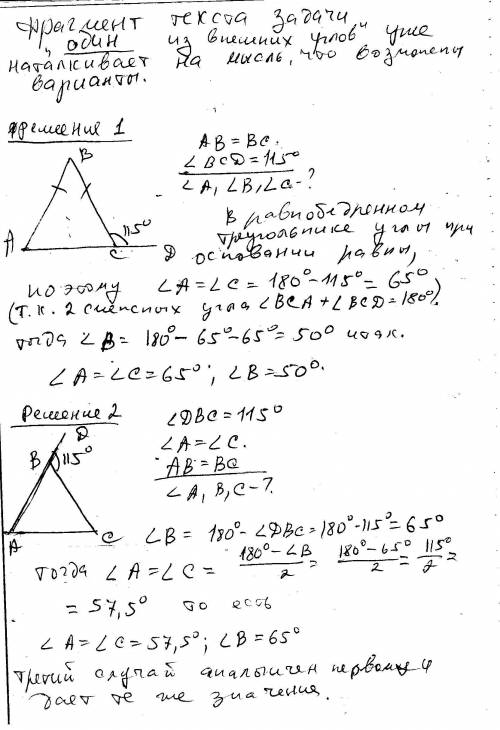 Фрагмент текста задачи
„один из внешних углов" уже
наталкивает на мысль, что возможны
варианты.
Решение 1
AB = BC.
∠BCD = 115°
∠A, ∠B, ∠C - ?
B
A
115°
C
D
В равнобедренном
треугольнике углы при
основании равны,
поэтому ∠A = ∠C = 180° - 115° = 65°
(т.к. 2 смежных угла ∠BCA + ∠BCD = 180°).
тогда ∠B = 180° - 65° - 65° = 50° итак.
∠A = ∠C = 65°; ∠B = 50°.
Решение 2
∠DBC = 115°
∠A = ∠C.
AB = BC
∠A, B, C - ?
D
B
115°
A
C
∠B = 180° - ∠DBC = 180° - 115° = 65°
тогда ∠A = ∠C = (180° - ∠B)/2 = (180° - 65°)/2 = 115°/2 =
= 57,5° то есть
∠A = ∠C = 57,5°; ∠B = 65°
третий случай аналогичен первому и
дает те же значения.